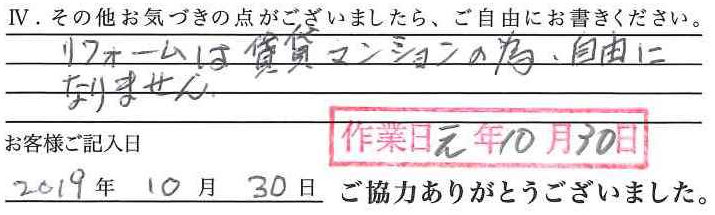 Ⅳ．その他お気づきの点がございましたら、ご自由にお書きください。
リフォームは賃貸マンションの為、自由に
なりません.
お客様ご記入日
作業日元年10月30日
2019年 10月 30日 ご協力ありがとうございました。